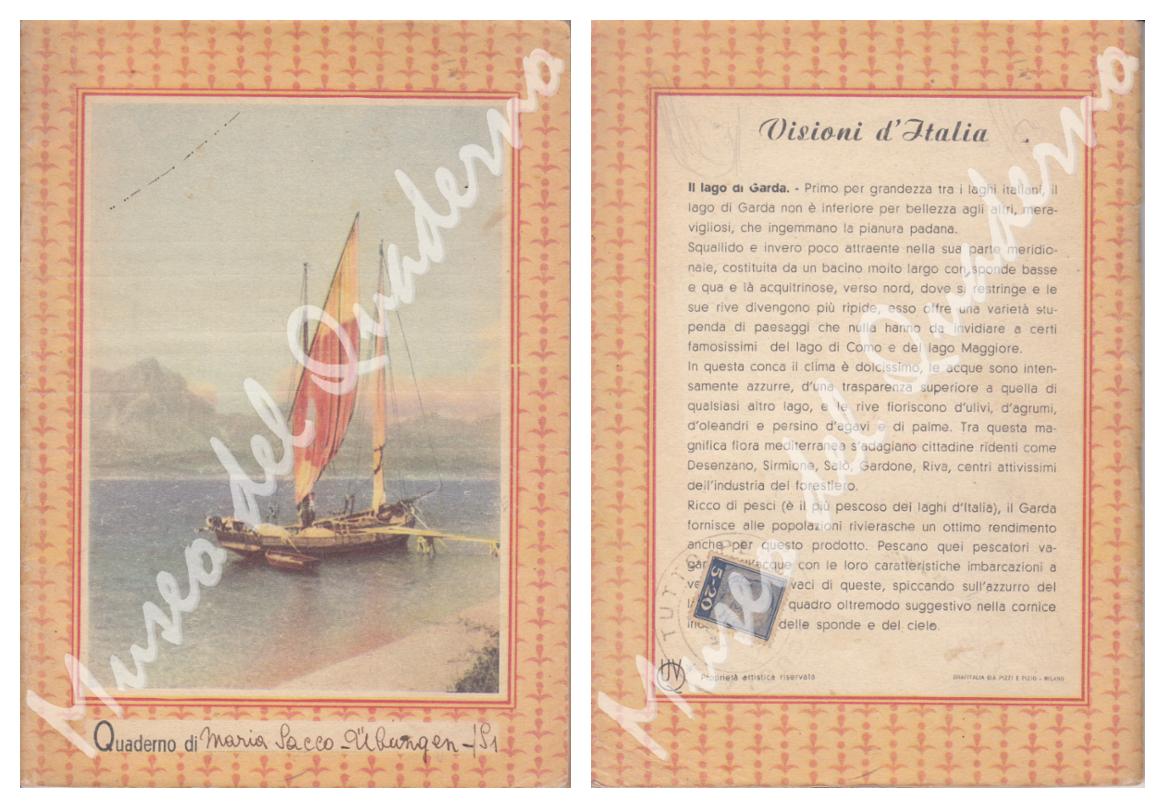 Quaderno di Maria Sacco - Übungen -
Museo del Quaderno
Visioni d'Italia
Il lago di Garda. - Primo per grandezza tra i laghi italiani, il
lago di Garda non è inferiore per bellezza agli altri, mera-
vigliosi, che ingemmano la pianura padana.
Squallido e invero poco attraente nella sua parte meridio-
nale, costituita da un bacino molto largo con sponde basse
e qua e là acquitrinose, verso nord, dove si restringe e le
sue rive divengono più ripide, esso offre una varietà stu-
penda di paesaggi che nulla hanno da invidiare a certi
famosissimi del lago di Como e del lago Maggiore.
In questa conca il clima è dolcissimo, le acque sono inten-
samente azzurre, d'una trasparenza superiore a quella di
qualsiasi altro lago, e le rive fioriscono d'ulivi, d'agrumi,
d'oleandri e persino d'agavi e di palme. Tra questa ma-
gnifica flora mediterranea s'adagiano cittadine ridenti come
Desenzano, Sirmione, Salò, Gardone, Riva, centri attivissimi
dell'industria del forestiero.
Ricco di pesci (è il più pescoso dei laghi d'Italia), il Garda
fornisce alle popolazioni rivierasche un ottimo rendimento
anche per questo prodotto. Pescano quei pescatori va-
con le loro caratteristiche imbarcazioni a
vaci di queste, spiccando sull'azzurro del
quadro oltremodo suggestivo nella cornice
delle sponde e del cielo.
5-20
TUTTO
UV
Proprietà artistica riservata
GRAFITALIA GIÀ PIZZI E PIZIO - MILANO
Museo del Quaderno